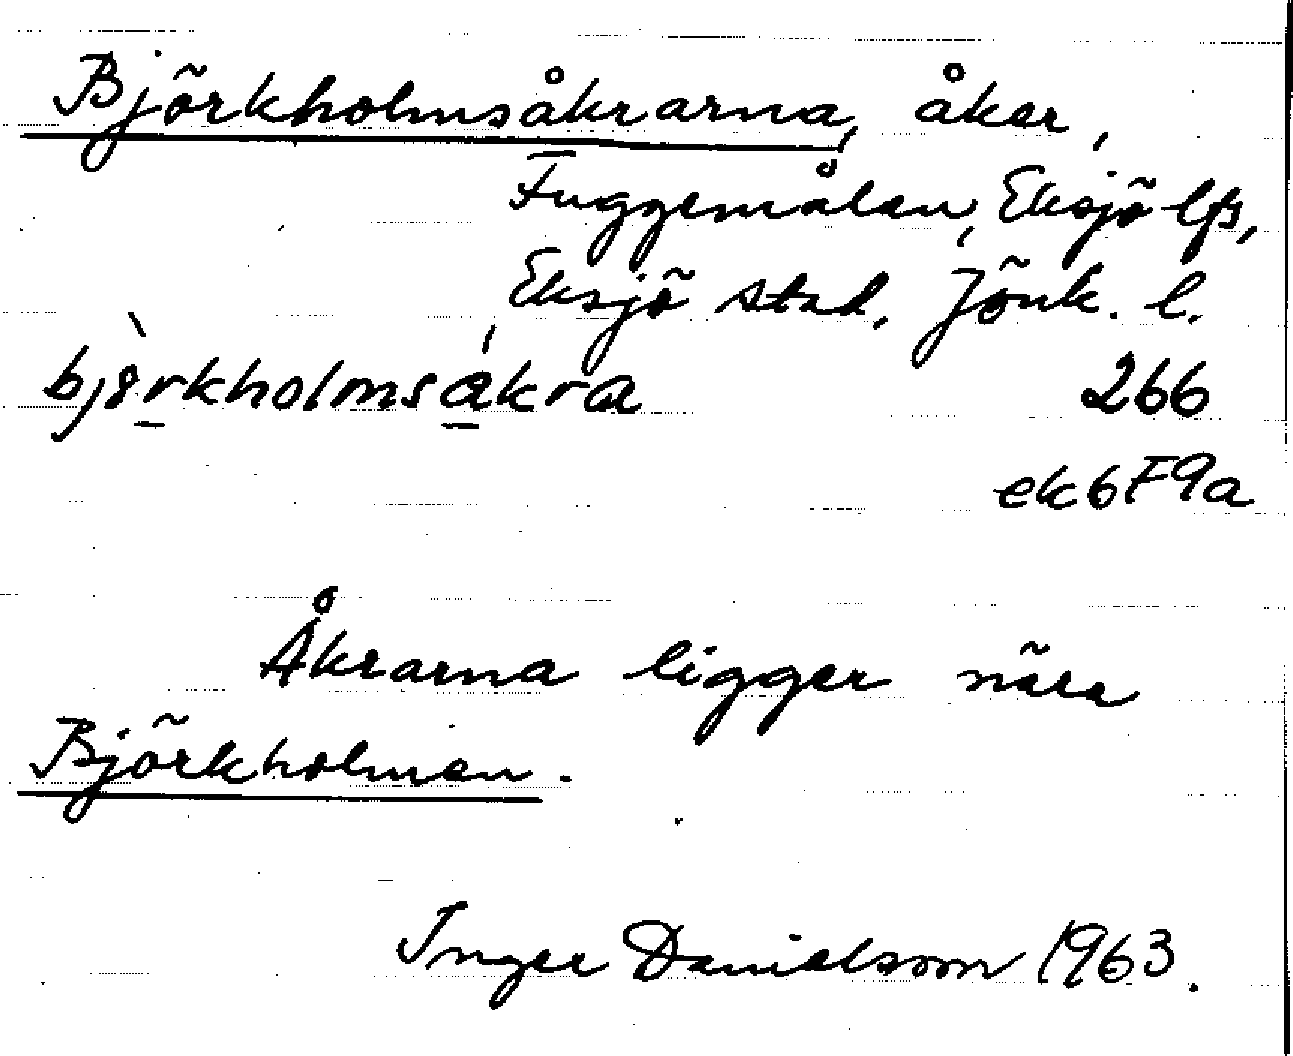 Björkholmsåkrarna, åker,
Fuggemålen, Eksjö lfs,
Eksjö stad, Jönk. l.
bjørkholmsakra 266
ek6F9a
Åkrarna ligger nära
Björkholmen.
Inger Danielsson 1963.